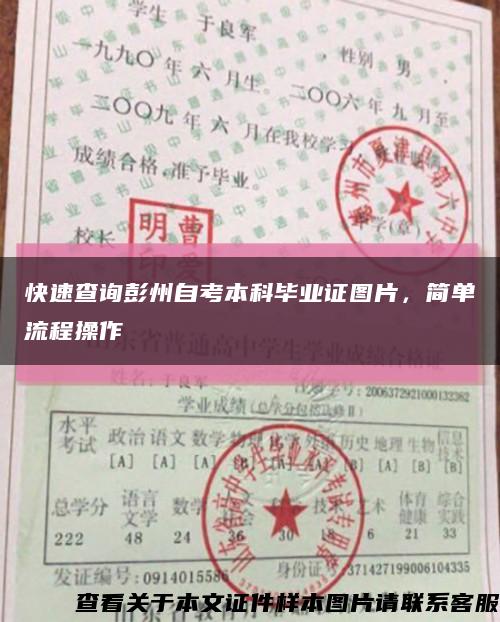 学生 于良军 ，性别 男 .
一九九〇 年 六 月生。二〇〇六 年 九 月至
二〇〇九 年 六 月在我校学习
成绩合格,准予毕业。
校长
曹爱明印
州市夏津县第六中学
学(章)
快速查询彭州自考本科毕业证图片，简单
流程操作
山东省普通高中学生学业成绩合格证
姓名:于良军 学号: 2006372921000132362
学业成绩(总学分包括必修Ⅱ)
水平考试 政治 语文 数学 物理 化学 外语 历史 地理 生物 信息技术
[A] [A] [A] [B] [A] [B] [A] [B] [B]
总学分 语言文学 数学 技术 艺术 体育健康 综合实践
222 48 24 36 30 18 6 21 33
发证编号: 0914015586 身份证号: 371427199006104335
查看关于本文证件样本图片请联系客服